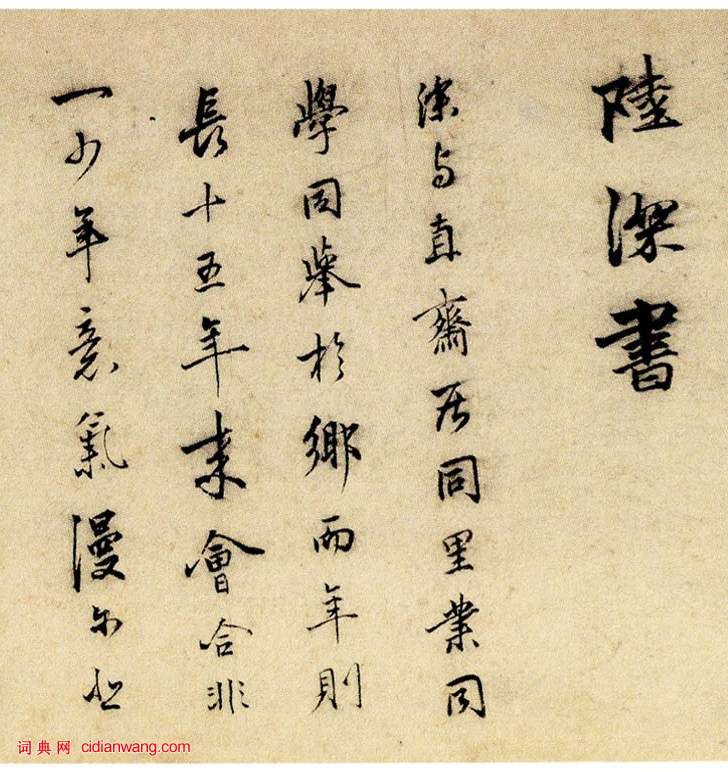 陸深書
深与直齋居同里業同
學同舉於鄉而年則
長十五年来會合非
一少年意氣漫尔
词典网 cidianwang.com